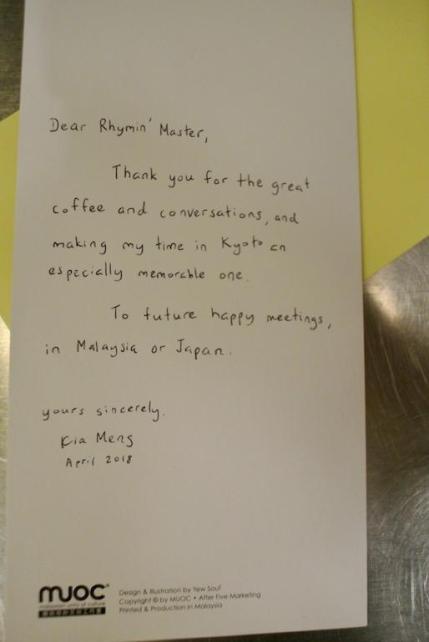 Dear Rhymin' Master,
Thank you for the great
coffee and conversations, and
making my time in Kyoto an
especially memorable one.
To future happy meetings,
in Malaysia or Japan.
yours sincerely.
Kia Meng
April 2018
MUOC
Design & Illustration by Yew Souf
Copyright © by MUOC • After Five Marketing
Printed & Production in Malaysia